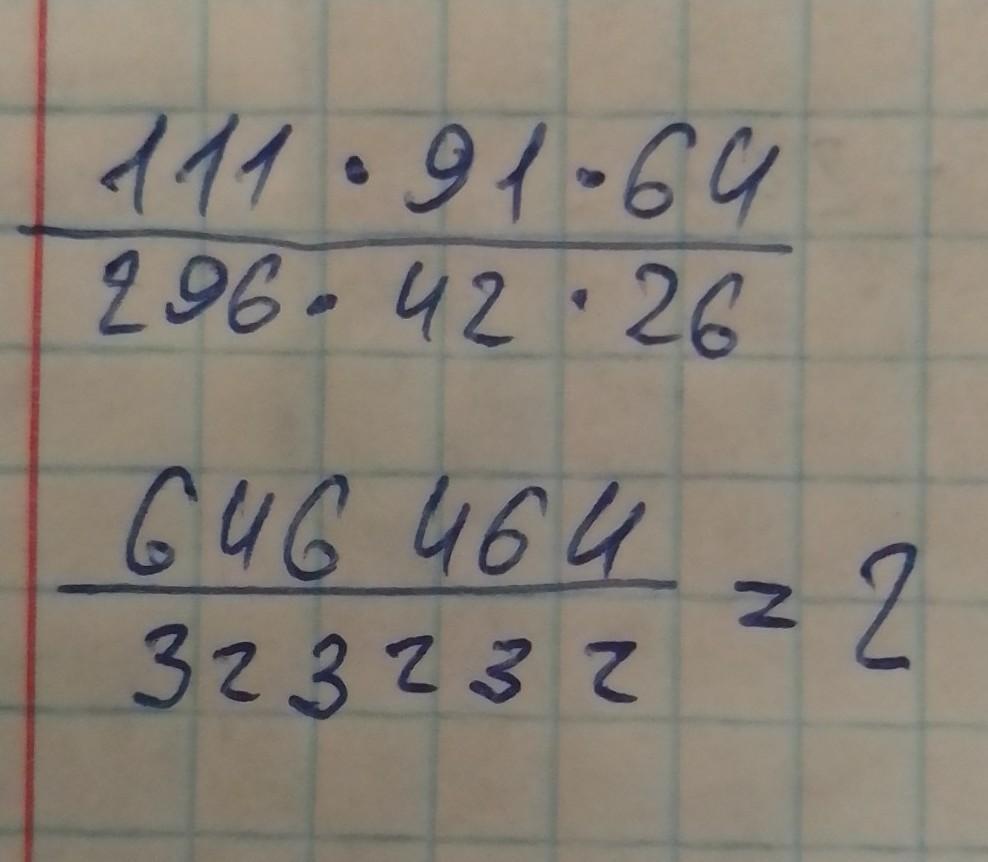 111 · 91 · 64
296 · 42 · 26
646 464
323232 = 2